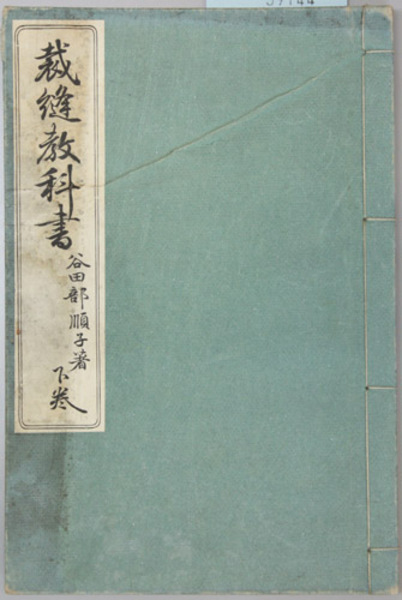 裁縫教科書
谷田部順子著
下巻